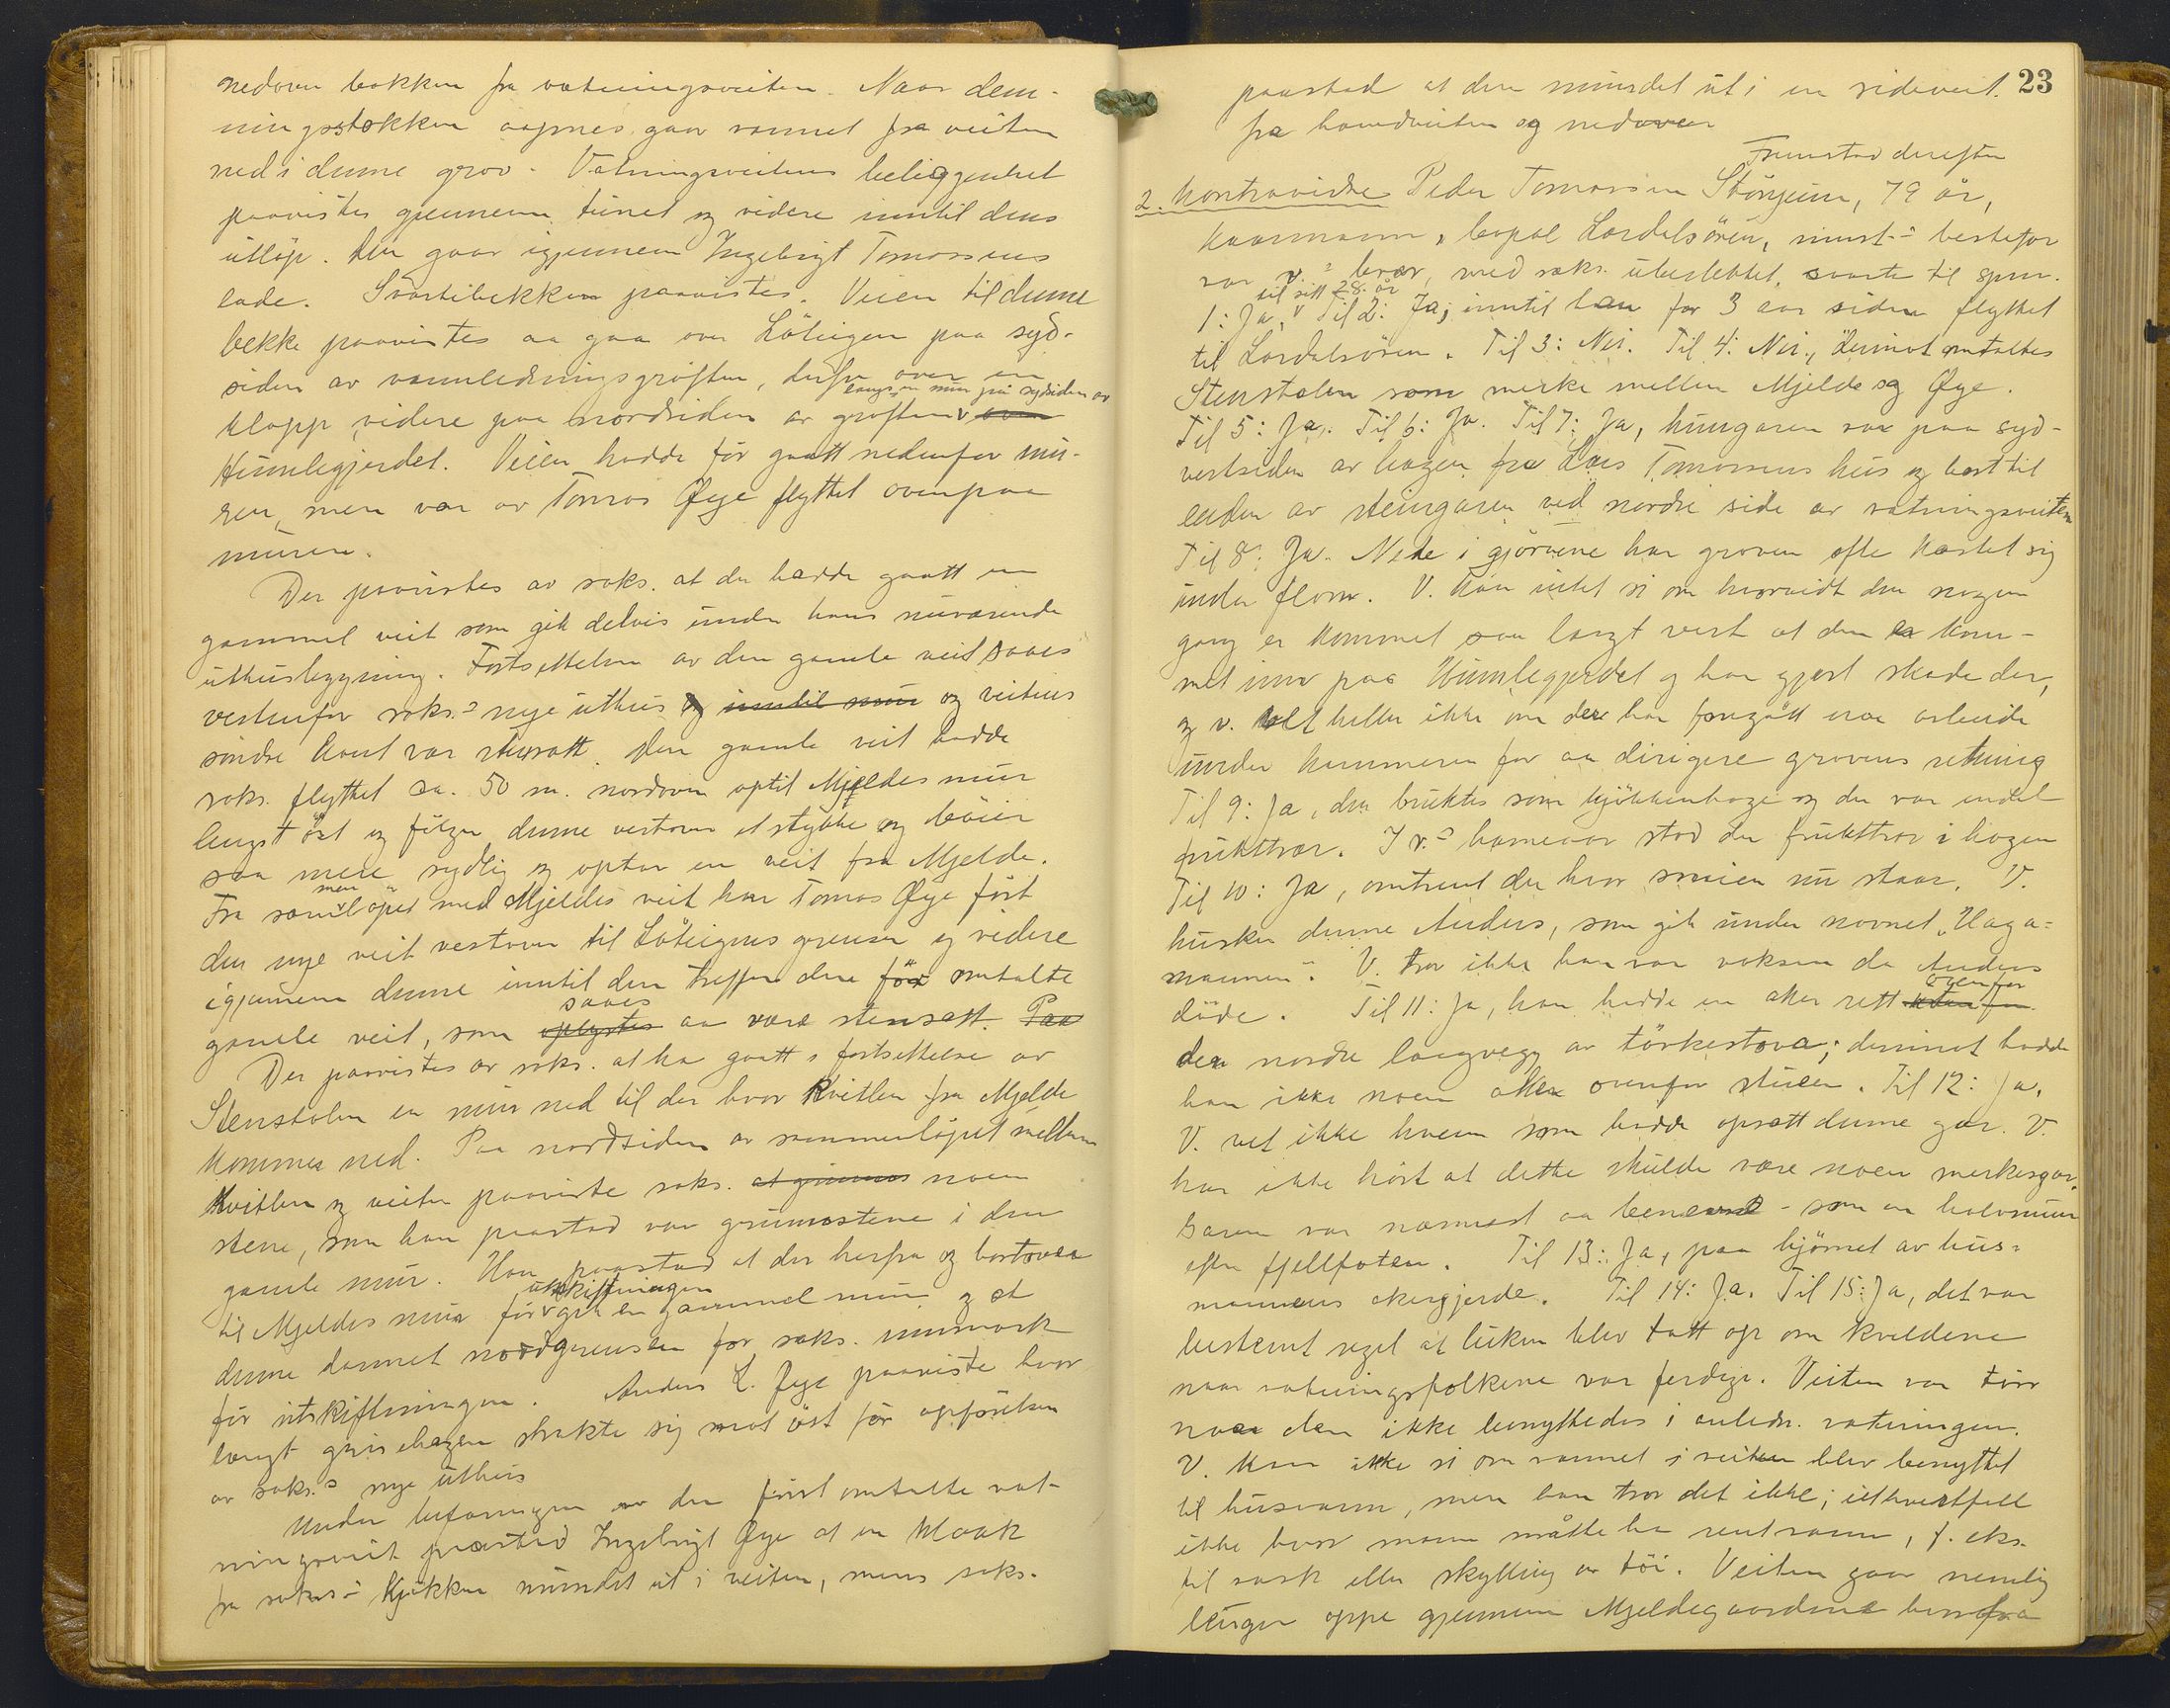 nedover bakken fra vatningsveiten. Naar dem-
ningsstokken aapnes gaar vannet fra veiten
ned i denne grov. Vatningsveitens beliggenhet
paavistes gjennem tunet og videre inntil dens
utløp. Den gaar igjennem Ingebrigt Tomassens
lade. Svartibekken paavistes. Veien til denne
bekke paavistes aa gaa over Löteigen paa syd-
siden av vannledningsgröften, derfra over en
klopp videre paa nordsiden av gröften v langs en mur på sydsiden av
Humlegjerdet. Veien hadde för gaatt nedenfor mu-
ren, men var av Tomas Øye flyttet ovenpaa
muren.
Der paavistes av saks. at der hadde gaatt en
gammel veit som gik delvis under hans nuværende
uthusbygning. Fortsettelsen av den gamle veit saaes
vestenfor saks.s nye uthus og inntil mur og veitens
söndre kant var stensatt. Den gamle veit hadde
saks. flyttet ca. 50 m. nordover optil Mjeldes mur
lengst öst og fölger denne vestover et stykke og böier
saa mere sydlig og optar en veit fra Mjelde.
Fra sammenlöpet med Mjeldes veit har Tomas Øye fört
den nye veit vestover til Löteigens grense og videre
igjennem denne inntil den treffer den för omtalte
gamle veit, som oplystes saaes aa være stensatt. Paa
Der paavistes av saks. at ha gaatt i fortsettelse av
Stenstolen en mur ned til der hvor Kvitlen fra Mjelde
kommer ned. Paa nordsiden av sammenlöpet mellem
Kvitlen og veiten paaviste saks. at finnes noen
stene, som han paastod var grunnstene i den
gamle mur. Han paastod at der herfra og bortover
til Mjeldes mur för v utskiftningen gik en gammel mur og at
denne dannet nordgrensen for saks. innmark
för utskiftningen. Anders L. Øye paaviste hvor
langt grisehagen strakte sig mot öst för opförelsen
av saks.s nye uthus
Under befaringen av den först omtalte vat-
ningsveit paastod Ingebrigt Øye at en kloak
fra saks.s kjökken mundet ut i veiten, mens saks.
23
paastod at den mundet ut i en sideveit
fra hovedveiten og nedover
Fremstod derefter
2. Kontravidne Peder Tomassen Stönjum, 79 år,
kaarmann, bopæl Lærdalsören, innst.s bestefar
var v.s bror, med saks. ubeslektet, svarte til spm.
1: Ja, v til sitt 28. år Til 2: Ja; inntil han for 3 aar siden flyttet
til Lærdalsören. Til 3: Nei. Til 4: Nei, derimot omtaltes
Stenstolen som merke mellem Mjelde og Øye.
Til 5: Ja. Til 6: Ja. Til 7: Ja, hungaren var paa syd-
vestsiden av hagen fra Lars Tomassens hus og bort til
enden av steingaren ved nordre side av vatningsveiten
Til 8: Ja. Nede i gjörvene har groven ofte kastet sig
under flom. V. kan intet si om hvorvidt den nogen
gang er kommet saa langt vest at den er kom-
met inn paa Humlegjerdet og har gjort skade der,
og v. vet heller ikke om der har foregått noe arbeide
under hammeren for aa dirigere grovens retning
Til 9: Ja, den bruktes som kjökkenhage og der var endel
frukttrær. I v.s barneaar stod der frukttrær i hagen
Til 10: Ja, omtrent der hvor smien nu staar. V.
husker denne Anders, som gik under navnet „Haga-
mannen". V. tror ikke han var voksen da Anders
döde. Til 11: Ja, han hadde en aker rett uten for ovenfor
den nordre langvegg av törkestova; derimot hadde
han ikke noen aker ovenfor stuen. Til 12: Ja.
V. vet ikke hvem som hadde opsatt denne gar. V.
har ikke hört at dette skulde være noen merkesgar.
Garen var nærmest aa benevne - som en halvmur
efter fjellfoten. Til 13: Ja, paa hjörnet av hus-
mannens akergjerde. Til 14: Ja. Til 15: Ja, det var
bestemt regel at luken blev tatt op om kveldene
naar vatningsfolkene var ferdige. Veiten var törr
naar den ikke benyttedes i anledn. vatningen.
V. kan ikke si om vannet i veiten blev benyttet
til husvann, men han tror det ikke; ialhvertfall
ikke hvor mann måtte ha rent vann, f. eks.
til vask eller skylling av töi. Veiten gaar nemlig
lenger oppe gjennem Mjeldegaardene hvorfra